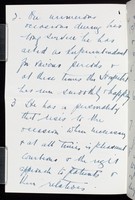 2. On numerous
occasions during his
long service he has
acted as Superintendent
for various periods &
at these times the Hospital
has run smoothly & happily
3. He has a personality
that rises to the
occasion when necessary
& at all times is pleasant
courteous & the right
approach to patients &
their relations.